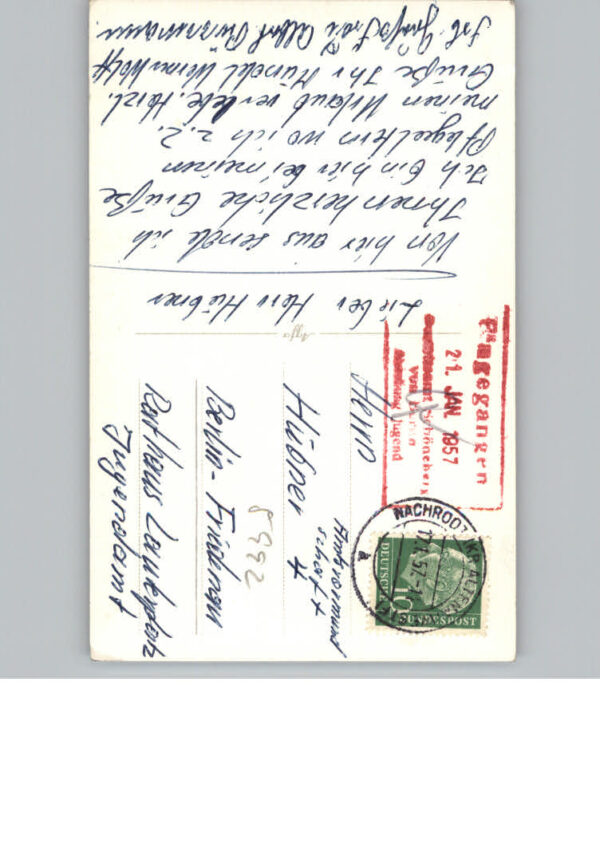 Lieber Herr Hübner
Von hier aus sende ich
Ihnen herzliche Grüße
Ich bin hier bei meinen
Pflegeeltern wo ich z.Z.
meinen Urlaub verlebe. Herzl.
Grüße Ihr Mündel Werner Wolff
Frau Albert
Eingegangen
21. JAN. 1957
Schöneberg
Jugend
NACHRODT
DEUTSCHE
BUNDESPOST
10
Herrn
Hübner
Amtsvormund
schaft
Berlin-Friedenau
8992
Rathaus Lauterplatz
Jugendamt